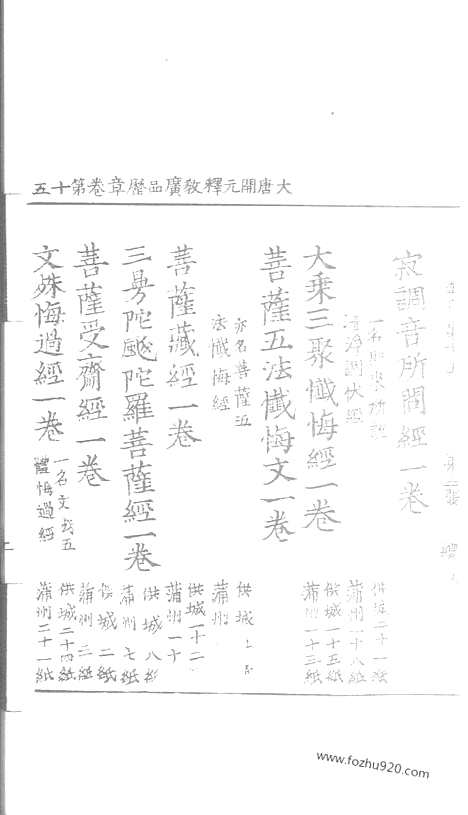 大唐開元釋敎廣品曆章卷第十五
寂調音所問經一卷
大乗三聚懺悔經一卷
供城一十五紙
蒲州一十三紙
菩薩五法懺悔文一卷
亦名菩薩五
法懺悔經
供城
蒲州
菩薩藏經一卷
供城一十二
蒲州一十
三曼陀颰陀羅菩薩經一卷
供城八紙
蒲州七紙
菩薩受齋經一卷
供城二紙
蒲州二紙
文殊悔過經一卷
一名文殊五
體悔過經
供城二十四紙
蒲州二十一紙
www.fozhu920.com